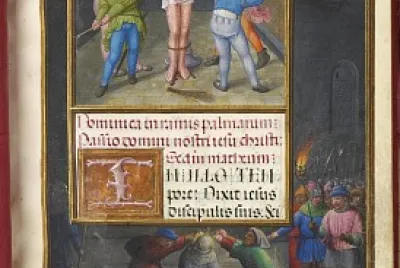 Dominica in ramis palmarum
Passio domini nostri iesu christi
Scdm matheum
IN ILLO TEM
pore: Dixit iesus
discipulis suis: &